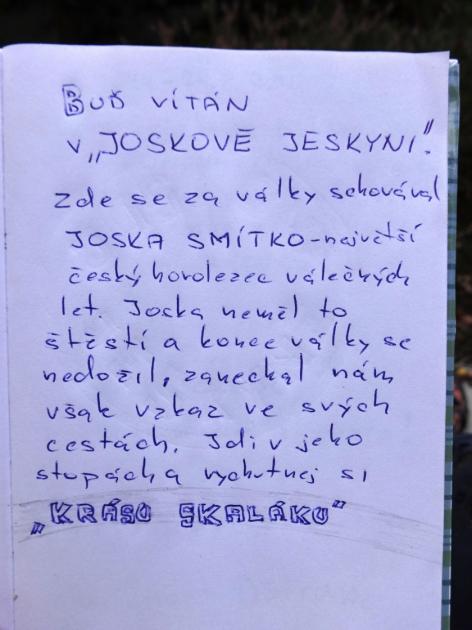 Buď vítán
v „JOSKOVĚ JESKYNI".
Zde se za války schovával
JOSKA SMÍTKO-největší
český horolezec válečných
let. Joska neměl to
štěstí a konce války se
nedožil, zanechal nám
však vzkaz ve svých
cestách. Jdi v jeho
stopách a vychutnej si
„KRÁSU SKALÁKU"